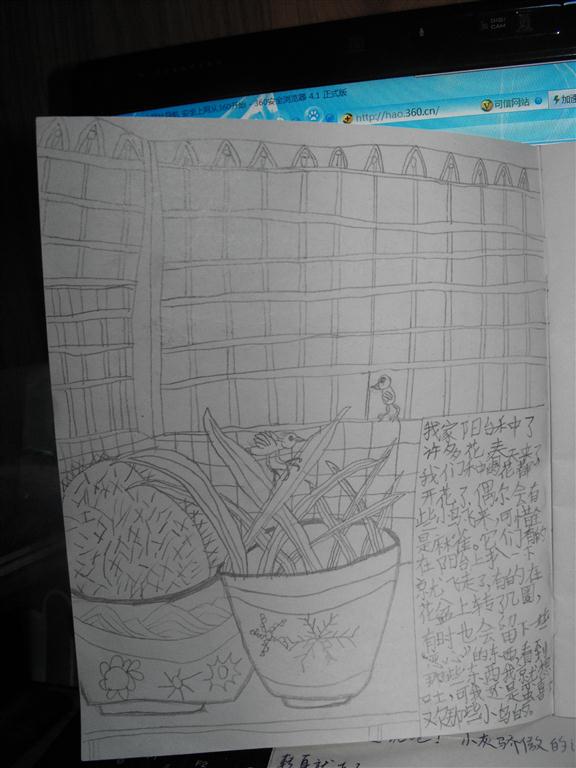 DIGI
CAM
安全上网从360开始 - 360安全浏览器 4.1 正式版
http://hao.360.cn/
可信网站
加速
我家阳台种中了
许多花,春天来了
我们种的花都
开花了,偶尔会有
些小鸟飞来,可惜全
是麻雀。它们有的
在阳台上趴一下
就飞走了,有的在
花盆上转了几圈,
有时也会留下一些
"恶心"的东西,看到
那些东西我就想
吐,可我还是蛮喜
欢那些小鸟的。
小灰骄傲的